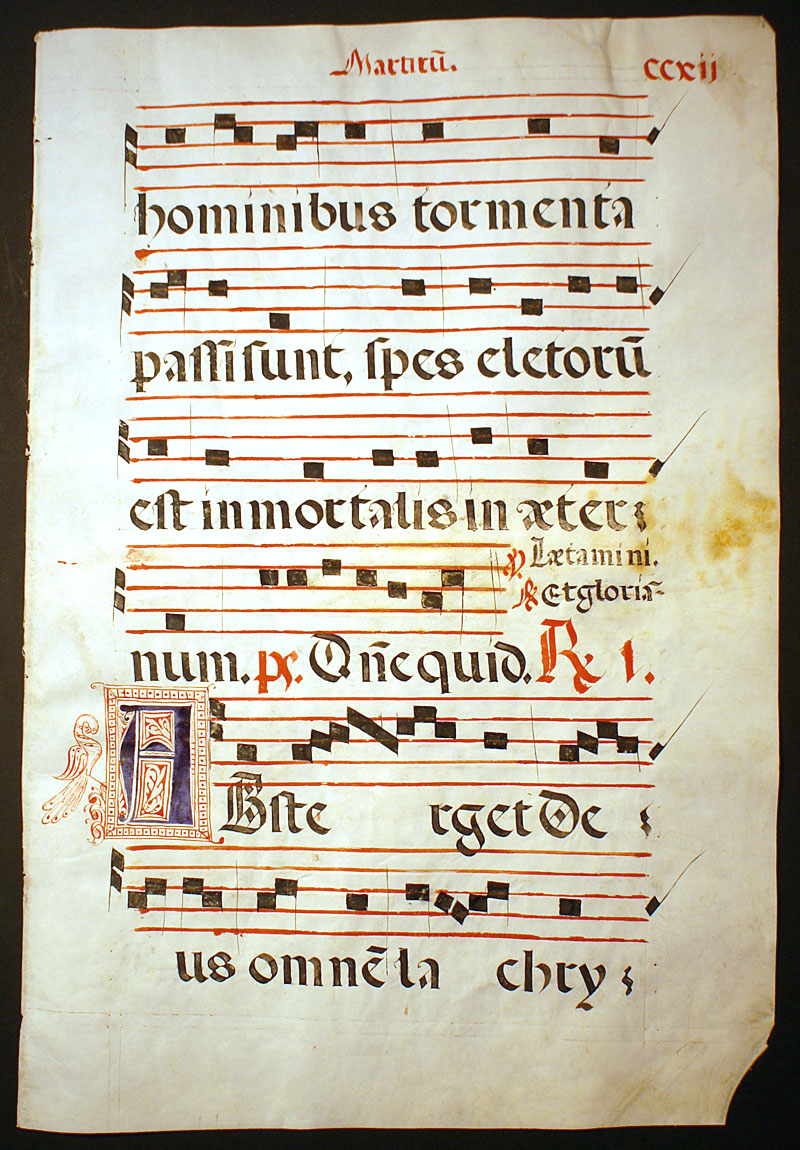 Martirū. CCXII
hominibus tormenta
passi sunt, spes eletorū
est inmortalis in æter
℣ Lætamini.
℟ Et gloria
num. ps. Dn̄e quid. ℟ 1.
ABste rget De
us omnē la chry